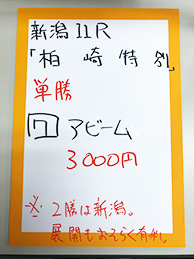 新潟11R
「柏崎特別」
単勝
7 アビーム
3000円
※ 2勝は新潟。
展開もおそらく有利。